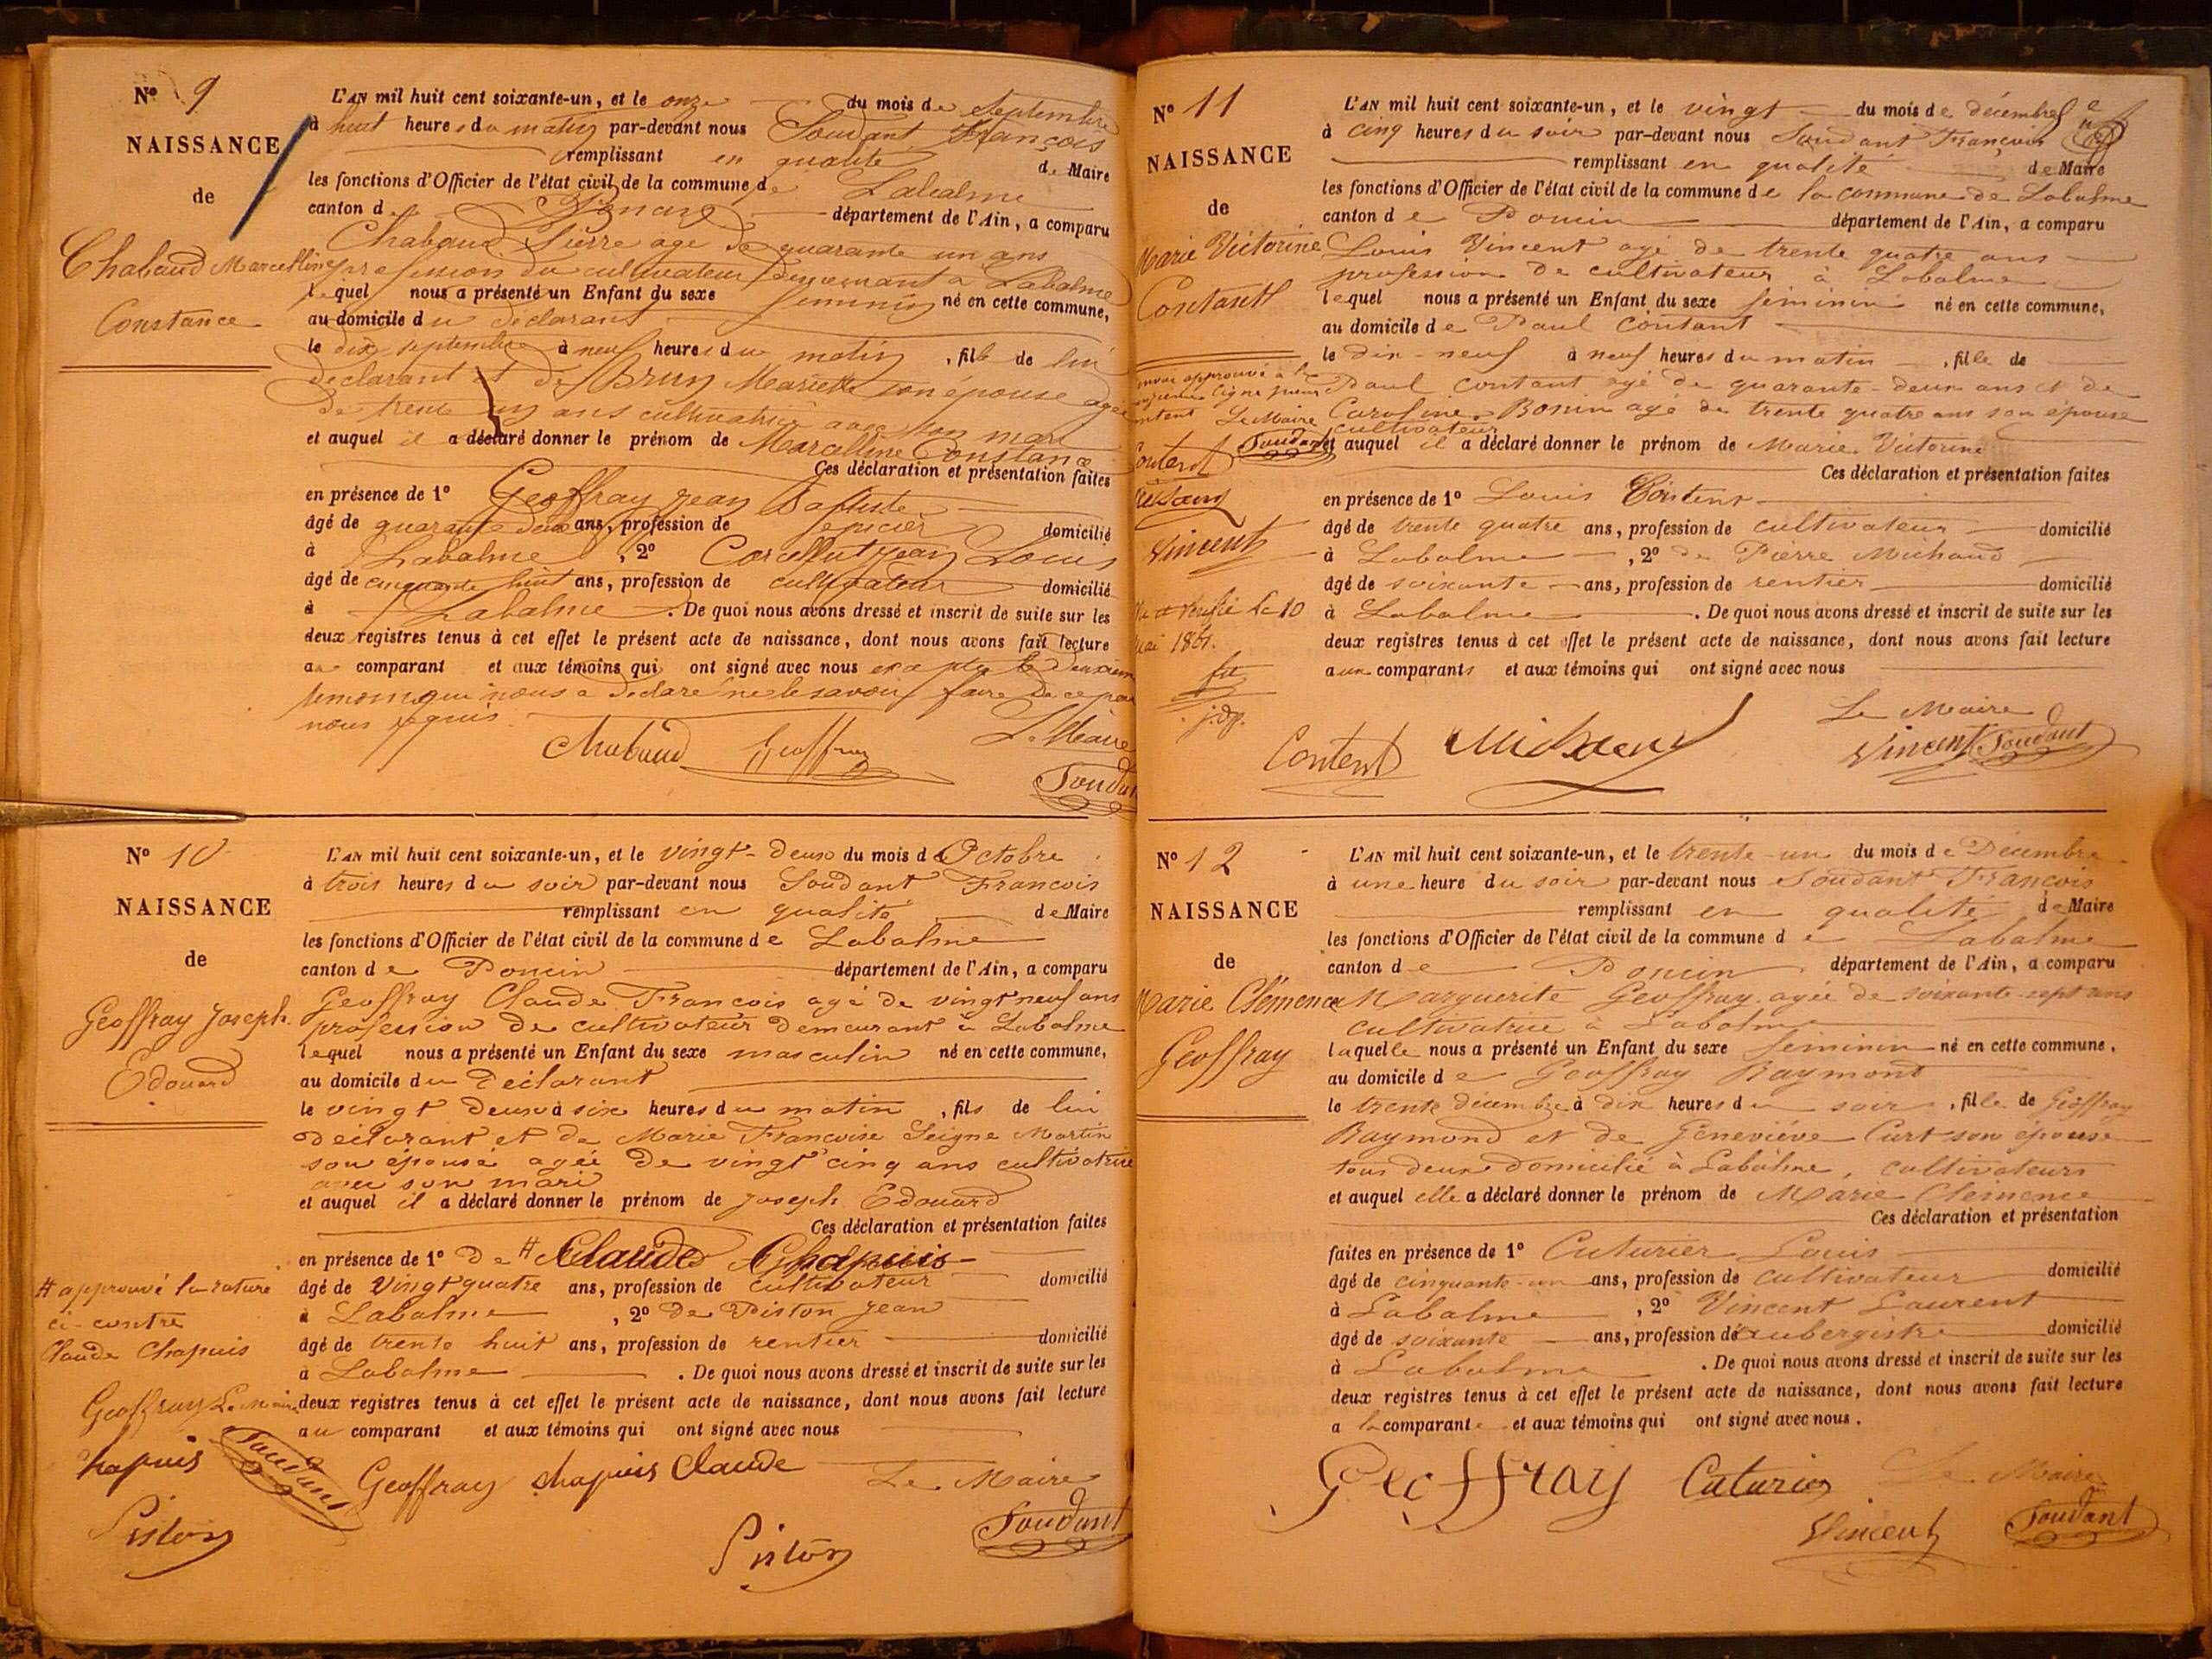 N° 9
NAISSANCE
de
Chabaud Marcelline
Constance
L'AN mil huit cent soixante-un, et le onze du mois de Septembre
à huit heures du matin par-devant nous Soudant François
remplissant en qualité de Maire
les fonctions d'Officier de l'état civil de la commune de Labalme
canton de département de l'Ain, a comparu
Chabaud Pierre age de quarante un ans
profession de cultivateur demeurant a Labalme
lequel nous a présenté un Enfant du sexe feminin né en cette commune,
au domicile du declarant
le dix septembre à neuf heures du matin, fille de lui
declarant et de Brun Mariette son épouse agée
de trente un ans cultivatrice avec son mari
et auquel il a déclaré donner le prénom de Marcelline Constance
Ces déclaration et présentation faites
en présence de 1° Geoffray jean Baptiste
âgé de quarante deux ans, profession de epicier domicilié
à Labalme, 2° jean Louis
âgé de cinquante huit ans, profession de cultivateur domicilié
à Labalme. De quoi nous avons dressé et inscrit de suite sur les
deux registres tenus à cet effet le présent acte de naissance, dont nous avons fait lecture
au comparant et aux témoins qui ont signé avec nous excepte le deuxieme
temoin qui nous a declaré ne le savoir faire de ce par
nous requis
Chabaud Geoffray Le Maire
Soudant
N° 10
NAISSANCE
de
Geoffray Joseph
Edouard
L'AN mil huit cent soixante-un, et le vingt-deux du mois d'Octobre
à trois heures du soir par-devant nous Soudant Francois
remplissant en qualité de Maire
les fonctions d'Officier de l'état civil de la commune de Labalme
canton de Poncin département de l'Ain, a comparu
Geoffray Claude Francois agé de vingt neuf ans
profession de cultivateur demeurant à Labalme
lequel nous a présenté un Enfant du sexe masculin né en cette commune,
au domicile du Déclarant
le vingt deux à six heures du matin, fils de lui
déclarant et de Marie Francoise Seigne Martin
son épouse agée de vingt cinq ans cultivatrice
avec son mari
et auquel il a déclaré donner le prénom de joseph Édouard
Ces déclaration et présentation faites
en présence de 1° De # Claude Chapuis
âgé de vingt quatre ans, profession de cultivateur domicilié
à Labalme, 2° de Piston jean
âgé de trente huit ans, profession de rentier domicilié
à Labalme. De quoi nous avons dressé et inscrit de suite sur les
deux registres tenus à cet effet le présent acte de naissance, dont nous avons fait lecture
au comparant et aux témoins qui ont signé avec nous
# approuvé la rature
ci-contre
Claude Chapuis
Geoffray Le Maire
hapuis Soudant
Piston
Geoffray chapuis Claude Le Maire
Piston Soudant
N° 11
NAISSANCE
de
Marie Victorine
L'AN mil huit cent soixante-un, et le vingt du mois de décembre
à cinq heures du soir par-devant nous Soudant François
remplissant en qualité de Maire
les fonctions d'Officier de l'état civil de la commune de la commune de Labalme
canton de Poncin département de l'Ain, a comparu
Louis Vincent agé de trente quatre ans
profession de cultivateur à Labalme
lequel nous a présenté un Enfant du sexe féminin né en cette commune,
au domicile de Paul Contant
le dix-neuf à neuf heures du matin, fille de
Paul contant agé de quarante-deux ans et de
Caroline Bonin agé de trente quatre ans son épouse
cultivateur
et auquel il a déclaré donner le prénom de Marie Victorine
Ces déclaration et présentation faites
en présence de 1° Louis Contens
âgé de trente quatre ans, profession de cultivateur domicilié
à Labalme, 2° de Pierre Michaud
âgé de soixante ans, profession de rentier domicilié
à Labalme. De quoi nous avons dressé et inscrit de suite sur les
deux registres tenus à cet effet le présent acte de naissance, dont nous avons fait lecture
aux comparants et aux témoins qui ont signé avec nous
Le Maire
Soudant
Vincent
Le Maire
Content Vincent Soudant
N° 12
NAISSANCE
de
Marie Clémence
Geoffray
L'AN mil huit cent soixante-un, et le trente-un du mois de Décembre
à une heure du soir par-devant nous Soudant François
remplissant en qualité de Maire
les fonctions d'Officier de l'état civil de la commune de Labalme
canton de Poncin département de l'Ain, a comparu
Marguerite Geoffray agée de soixante-sept ans
cultivatrice à Labalme
laquelle nous a présenté un Enfant du sexe féminin né en cette commune,
au domicile de Geoffray Raymond
le trente décembre à dix heures du soir, fille de Geoffray
Raymond et de Geneviève Curt son épouse
tous deux domicilié à Labalme, cultivateurs
et auquel elle a déclaré donner le prénom de Marie Clémence
Ces déclaration et présentation
faites en présence de 1° Cuturier Louis
âgé de cinquante-un ans, profession de cultivateur domicilié
à Labalme, 2° Vincent Laurent
âgé de soixante ans, profession d'aubergiste domicilié
à Labalme. De quoi nous avons dressé et inscrit de suite sur les
deux registres tenus à cet effet le présent acte de naissance, dont nous avons fait lecture
a la comparante et aux témoins qui ont signé avec nous.
Geoffray Cuturier Le Maire
Vincent Soudant